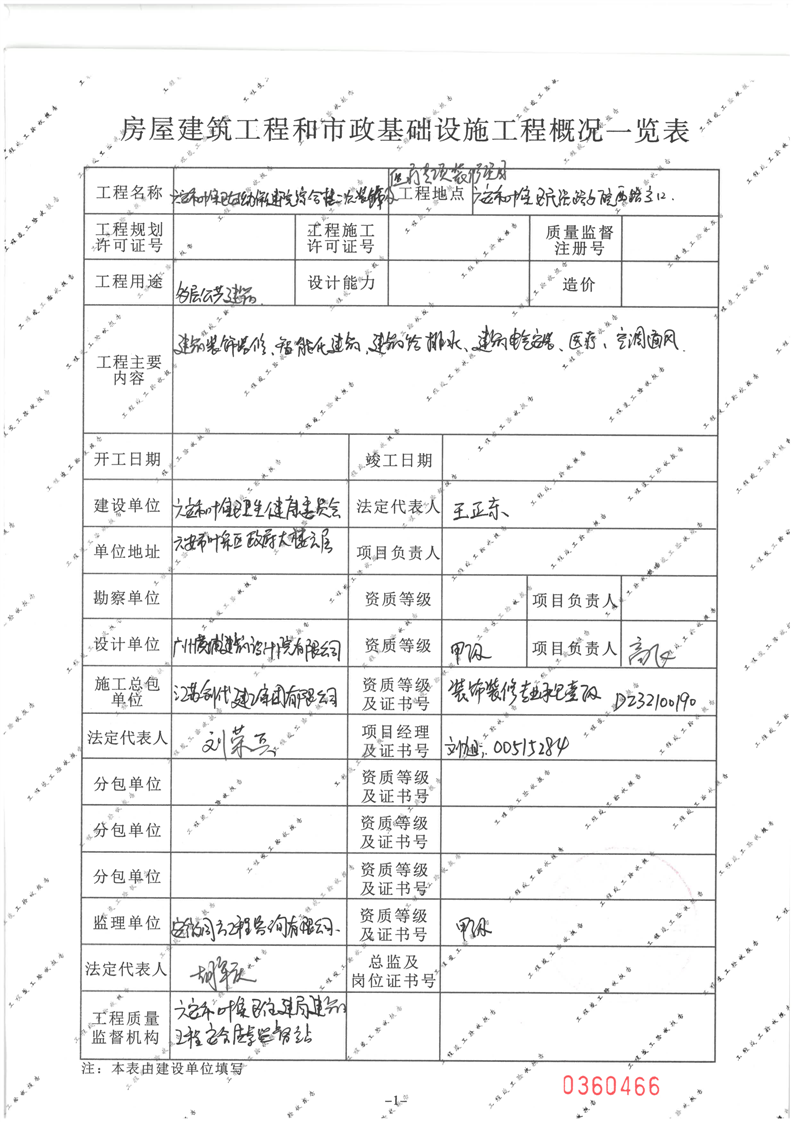 房屋建筑工程和市政基础设施工程概况一览表
医疗专项装修项目
工程名称 六安市叶集区妇幼保健院综合楼二次装饰及 工程地点 六安市叶集区民生路与皖西路
工程规划许可证号 工程施工许可证号 质量监督注册号
工程用途 多层公共建筑 设计能力 造价
工程主要内容 建筑装饰装修、智能化建筑、建筑给排水、建筑电气安装、医疗、空调通风
开工日期 竣工日期
建设单位 六安市叶集区卫生健康委员会 法定代表人 王正东
单位地址 六安市叶集区政府大楼六层 项目负责人
勘察单位 资质等级 项目负责人
设计单位 建筑设计院有限公司 资质等级 甲级 项目负责人 高飞
施工总包单位 建工集团有限公司 资质等级及证书号 装饰装修专业承包壹级 D232100190
法定代表人 刘荣兵 项目经理及证书号 刘旭 00515284
分包单位 资质等级及证书号
分包单位 资质等级及证书号
分包单位 资质等级及证书号
监理单位 工程咨询有限公司 资质等级及证书号 甲级
法定代表人 总监及岗位证书号
工程质量监督机构 六安市叶集区住建局建筑工程安全质量监督站
注：本表由建设单位填写
0360466
-1-
工程竣工验收报告